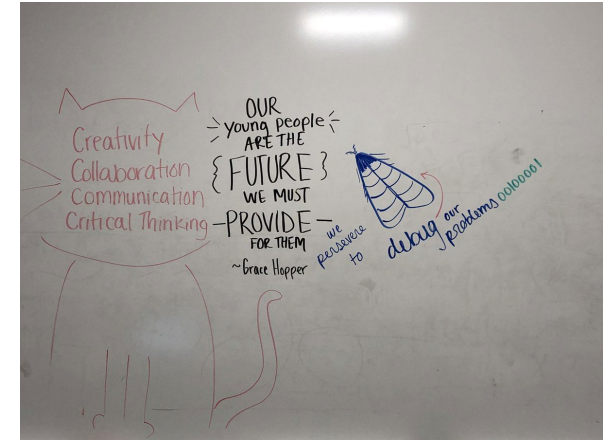 Creativity
Collaboration
Communication
Critical Thinking
OUR
young people
ARE THE
{FUTURE}
WE MUST
-PROVIDE-
FOR THEM
~Grace Hopper
we
persevere
to
debug
our
problems 00100001